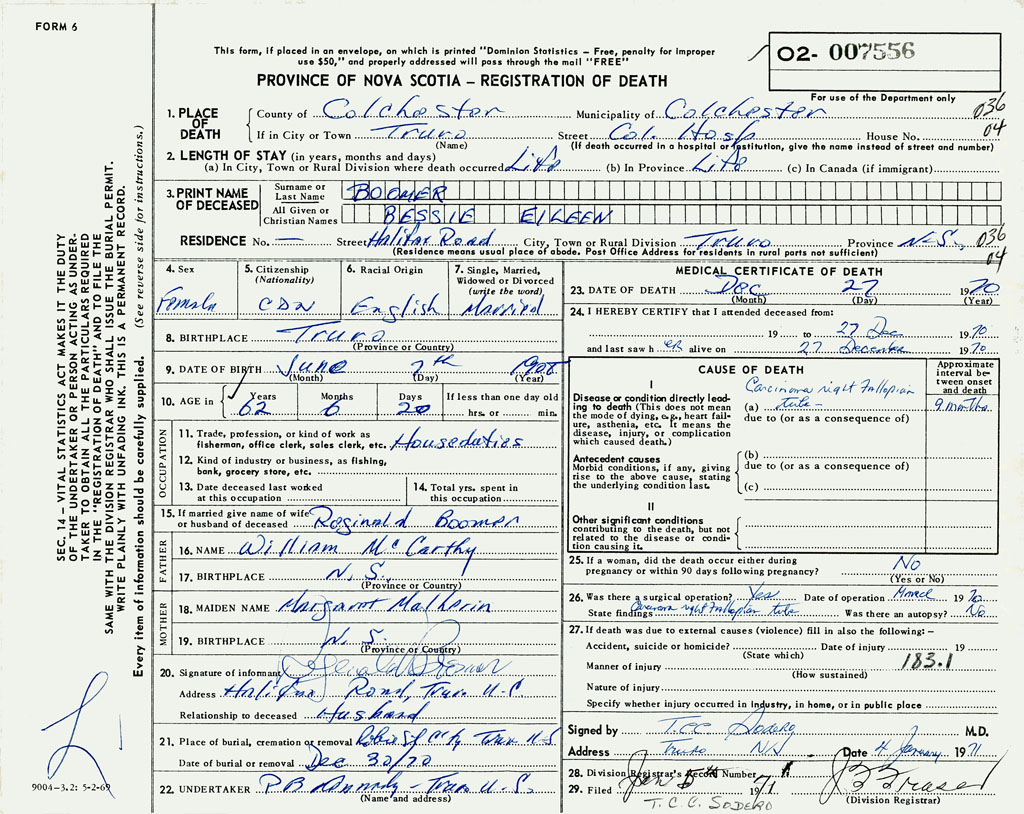 FORM 6
This form, if placed in an envelope, on which is printed "Dominion Statistics – Free, penalty for improper
use $50," and properly addressed will pass through the mail "FREE"
PROVINCE OF NOVA SCOTIA – REGISTRATION OF DEATH
02- 007556
For use of the Department only
1. PLACE OF DEATH County of Colchester Municipality of Colchester 036
If in City or Town Truro (Name) Street Col. Hosp House No. 04
(If death occurred in a hospital or institution, give the name instead of street and number)
2. LENGTH OF STAY (in years, months and days)
(a) In City, Town or Rural Division where death occurred Life (b) In Province Life (c) In Canada (if immigrant)
3. PRINT NAME OF DECEASED Surname or Last Name BOOMER
All Given or Christian Names BESSIE EILEEN
RESIDENCE No. — Street Halifax Road City, Town or Rural Division Truro Province N.S. 036
(Residence means usual place of abode. Post Office Address for residents in rural parts not sufficient) 04
4. Sex Female
5. Citizenship (Nationality) CDN
6. Racial Origin English
7. Single, Married, Widowed or Divorced (write the word) Married
8. BIRTHPLACE Truro
(Province or Country)
9. DATE OF BIRTH June 7th 1908
(Month) (Day) (Year)
10. AGE in Years 62 Months 6 Days 20 If less than one day old
hrs. or min.
OCCUPATION
11. Trade, profession, or kind of work as
fisherman, office clerk, sales clerk, etc. Houseduties
12. Kind of industry or business, as fishing,
bank, grocery store, etc.
13. Date deceased last worked
at this occupation
14. Total yrs. spent in
this occupation
15. If married give name of wife
or husband of deceased Reginald Boomer
FATHER
16. NAME William McCarthy
17. BIRTHPLACE N.S.
(Province or Country)
MOTHER
18. MAIDEN NAME Margaret
19. BIRTHPLACE N.S.
(Province or Country)
20. Signature of informant
Address Halifax Road, Truro N.S.
Relationship to deceased Husband
21. Place of burial, cremation or removal Truro N.S
Date of burial or removal Dec 30/70
22. UNDERTAKER Truro N.S.
(Name and address)
MEDICAL CERTIFICATE OF DEATH
23. DATE OF DEATH Dec 27 1970
(Month) (Day) (Year)
24. I HEREBY CERTIFY that I attended deceased from:
19 to 27 Dec 1970
and last saw h er alive on 27 December 1970
CAUSE OF DEATH
Approximate interval between onset and death
I
Disease or condition directly leading to death (This does not mean the mode of dying, e.g., heart failure, asthenia, etc. It means the disease, injury, or complication which caused death.)
Carcinoma right Fallopian
(a) tube 9 months
due to (or as a consequence of)
Antecedent causes
Morbid conditions, if any, giving rise to the above cause, stating the underlying condition last.
(b)
due to (or as a consequence of)
(c)
II
Other significant conditions
contributing to the death, but not related to the disease or condition causing it.
25. If a woman, did the death occur either during
pregnancy or within 90 days following pregnancy? No
(Yes or No)
26. Was there a surgical operation? Yes Date of operation March 1970
State findings Carcinoma right Fallopian tube Was there an autopsy? No
27. If death was due to external causes (violence) fill in also the following: –
Accident, suicide or homicide? Date of injury 19
(State which)
Manner of injury 183.1
(How sustained)
Nature of injury
Specify whether injury occurred in industry, in home, or in public place
Signed by T.C.C. Sodero M.D.
Address Truro NS Date 4 January 1971
28. Division Registrar's Record Number
29. Filed Jan 5th 1971 J B Fraser
(Division Registrar)
T.C.C. SODERO
SEC. 14 – VITAL STATISTICS ACT MAKES IT THE DUTY
OF THE UNDERTAKER OR PERSON ACTING AS UNDER-
TAKER TO OBTAIN ALL THE PARTICULARS REQUIRED
IN THE "REGISTRATION OF DEATH" AND TO FILE THE
SAME WITH THE DIVISION REGISTRAR WHO SHALL ISSUE THE BURIAL PERMIT.
WRITE PLAINLY WITH UNFADING INK. THIS IS A PERMANENT RECORD.
Every item of information should be carefully supplied. (See reverse side for instructions.)
9004-3.2: 5-2-69